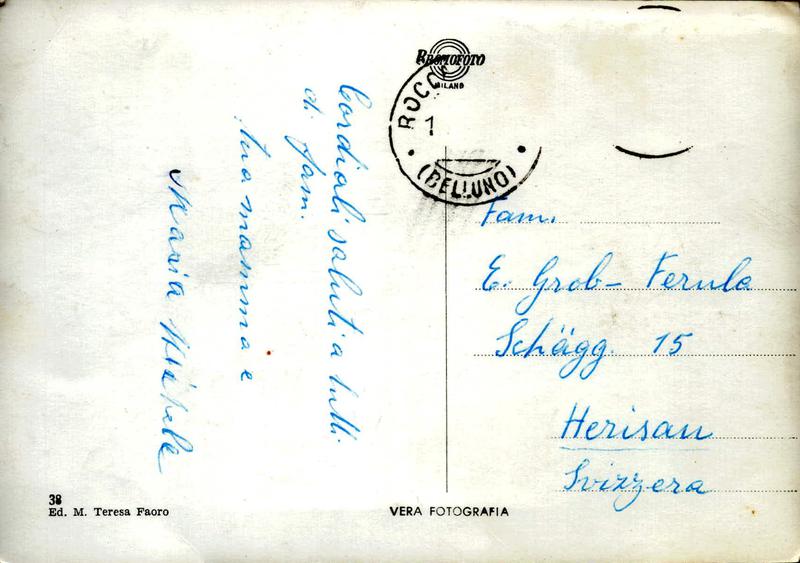 BROMOFOTO
MILANO
ROCC
1
(BELLUNO)
Cordiali saluti a tutti
di fam.
tua mamma e
Maria Michele
Fam.
E. Grob - Ferula
Schägg. 15
Herisau
Svizzera
38
Ed. M. Teresa Faoro
VERA FOTOGRAFIA